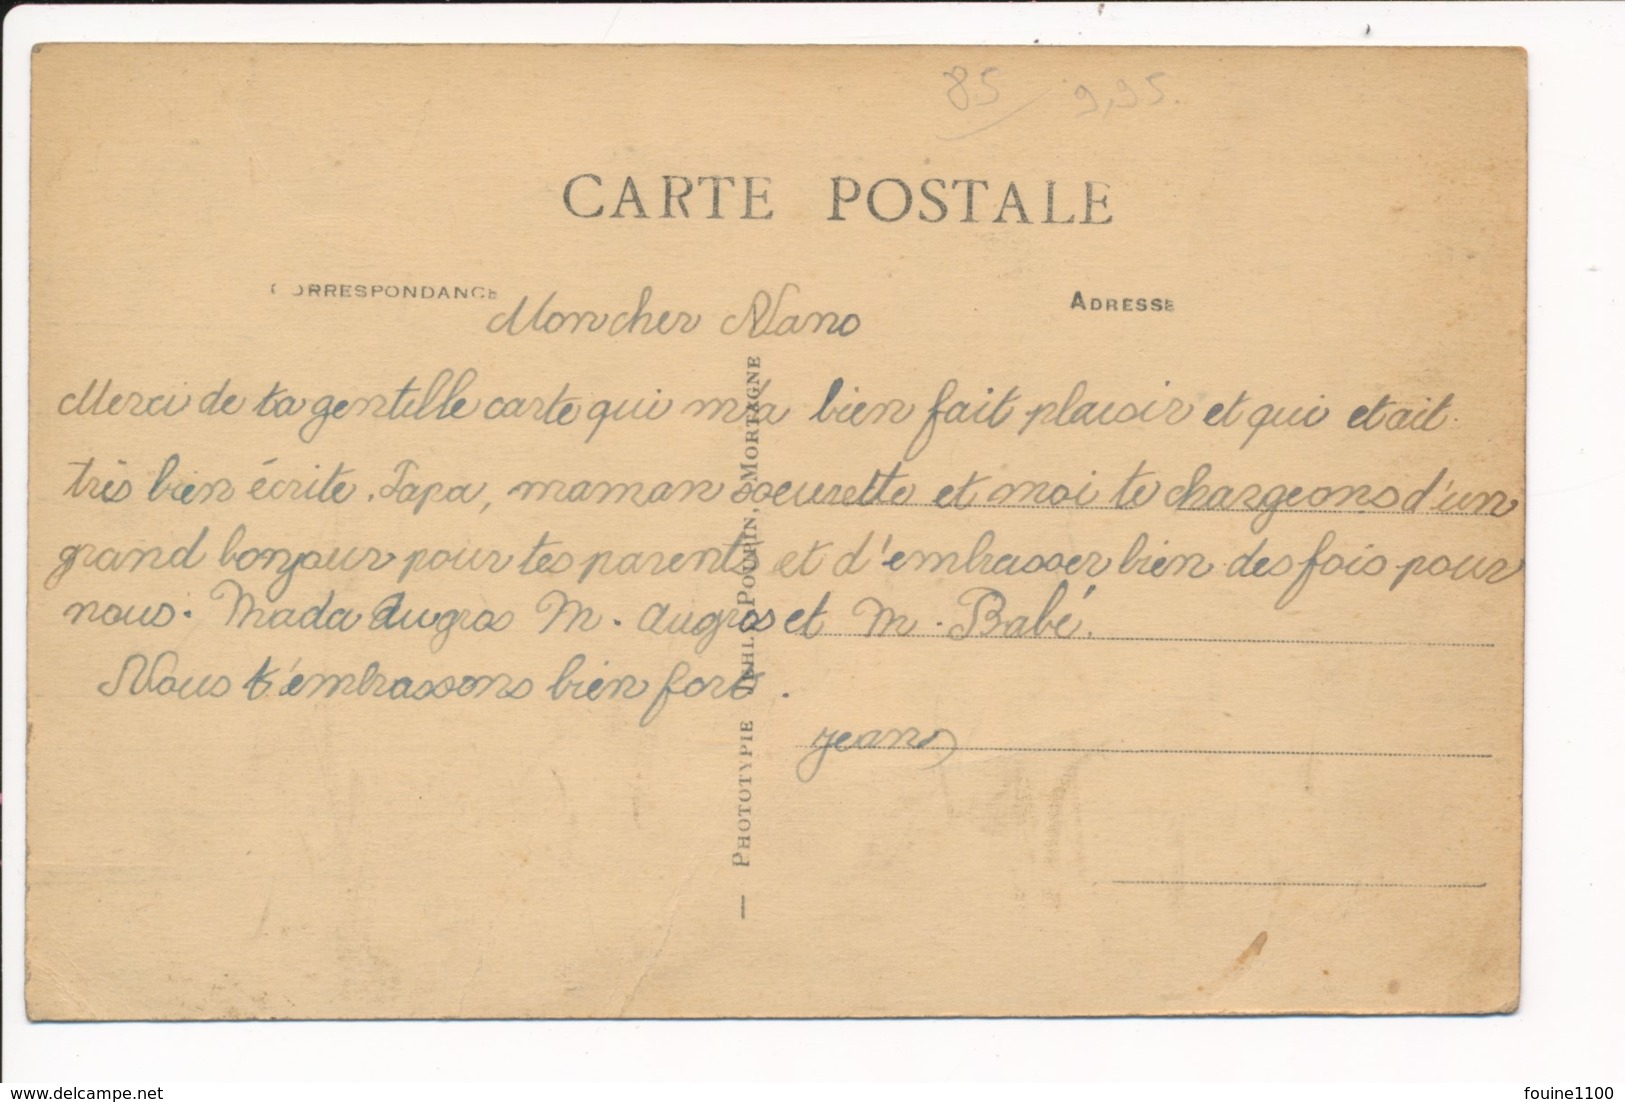 85 9,95.
CARTE POSTALE
CORRESPONDANCE
ADRESSE
Mon cher Nano
Merci de ta gentille carte qui m'a bien fait plaisir et qui etait
très bien écrite. Papa, maman soeurette et moi te chargeons d'un
grand bonjour pour tes parents et d'embrasser bien des fois pour
nous. Mada Augros M. Augros et M. Babé.
Nous t'embrassons bien fort.
jean
— PHOTOTYPIE POUPIN, MORTAGNE
delcampe.net
fouine1100